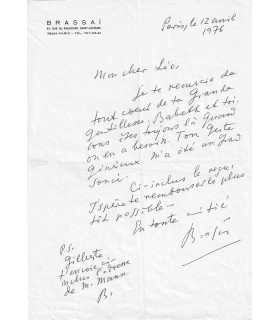 BRASSAÏ
81, RUE DU FAUBOURG SAINT-JACQUES
75014 PARIS - TEL. 707-23-41
Paris, le 12 avril
1976
Mon cher Léo,
Je te remercie de
tout coeur de ta Grande
gentillesse. Babeth et toi,
vous êtes toujours là quand
on en a besoin. Ton geste
généreux m'a ôté un grand
souci.
Ci-inclus le reçu,
J'espère te rembourser le plus
tôt possible —
En toute amitié
Brassaï
P.S.
Gilberte
t'envoie ci-
inclus l'adresse
de M. Mann.
B.